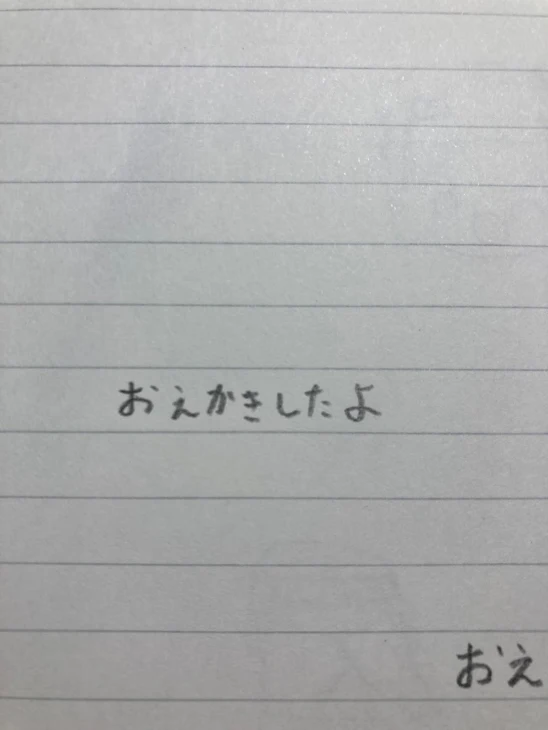 おえかきしたよ
おえ